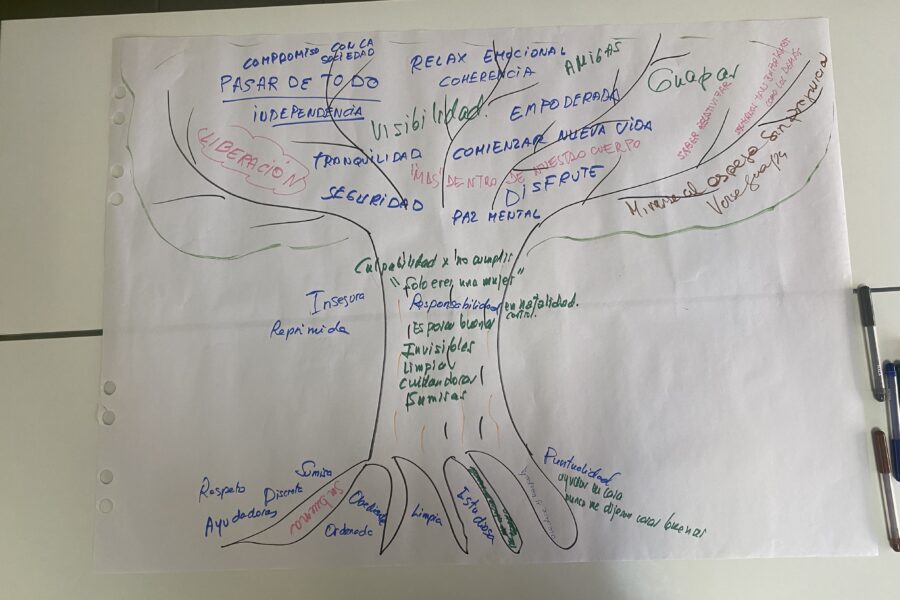 COMPROMISO CON LA
SOCIEDAD
PASAR DE TODO
INDEPENDENCIA
LIBERACIÓN
TRANQUILIDAD
SEGURIDAD
RELAX EMOCIONAL
COHERENCIA
AMIGAS
Visibilidad.
EMPODERADA
COMENZAR NUEVA VIDA
"MÁS" DENTRO DE NUESTRO CUERPO
DISFRUTE
PAZ MENTAL
Guapas
COMO LOS DEMÁS
Mirarse al espejo sin
Verse guapa
Culpabilidad x no cumplir
"solo eres una mujer"
Responsabilidad en natalidad.
control.
Insegura
Reprimida
Esposas buenas
Invisibles
Limpiar
Cuidadoras
Sumisas
Sumisa
Respeto
Discreta
Ayudadoras
Ser buena
Obediente
Ordenada
Limpia
Estudiosa
Puntualidad
ayudar en casa
nunca me dijeron cosas buenas